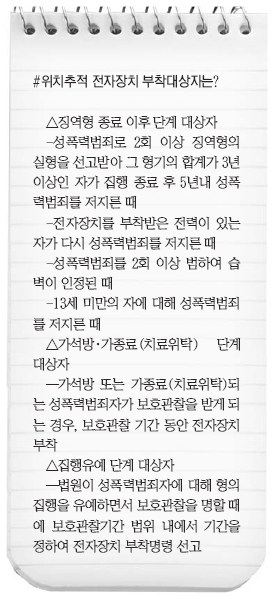 #위치추적 전자장치 부착대상자는?
△징역형 종료 이후 단계 대상자
-성폭력범죄로 2회 이상 징역형의
실형을 선고받아 그 형기의 합계가 3년
이상인 자가 집행 종료 후 5년내 성폭
력범죄를 저지른 때
-전자장치를 부착받은 전력이 있는
자가 다시 성폭력범죄를 저지른 때
-성폭력범죄를 2회 이상 범하여 습
벽이 인정된 때
-13세 미만의 자에 대해 성폭력범죄
를 저지른 때
△가석방·가종료(치료위탁) 단계
대상자
—가석방 또는 가종료(치료위탁)되
는 성폭력범죄자가 보호관찰을 받게 되
는 경우, 보호관찰 기간 동안 전자장치
부착
△집행유예 단계 대상자
—법원이 성폭력범죄자에 대해 형의
집행을 유예하면서 보호관찰을 명할 때
에 보호관찰기간 범위 내에서 기간을
정하여 전자장치 부착명령 선고